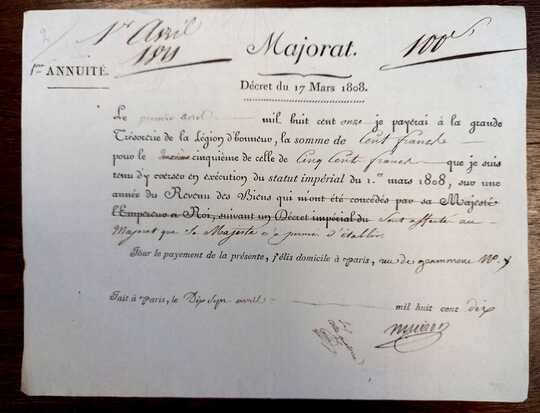 1er Avril
1811
100f
1ère ANNUITÉ.
Majorat.
Décret du 17 Mars 1808.
Le premier avril mil huit cent onze je payerai à la grande
Trésorerie de la Légion d'honneur, la somme de Cent francs
pour le cinquième de celle de Cinq Cent francs que je suis
tenu d'y verser en exécution du statut impérial du 1.er mars 1808, sur une
année du Revenu des Biens qui m'ont été concédés par sa Majesté
l'Empereur & Roi, suivant un Décret impérial du sont affectés au
Majorat que Sa Majesté m'a permis d'établir.
Pour le payement de la présente, j'élis domicile à Paris, rue de grammont No. 7
Fait à Paris, le Dix Sept avril mil huit cent dix